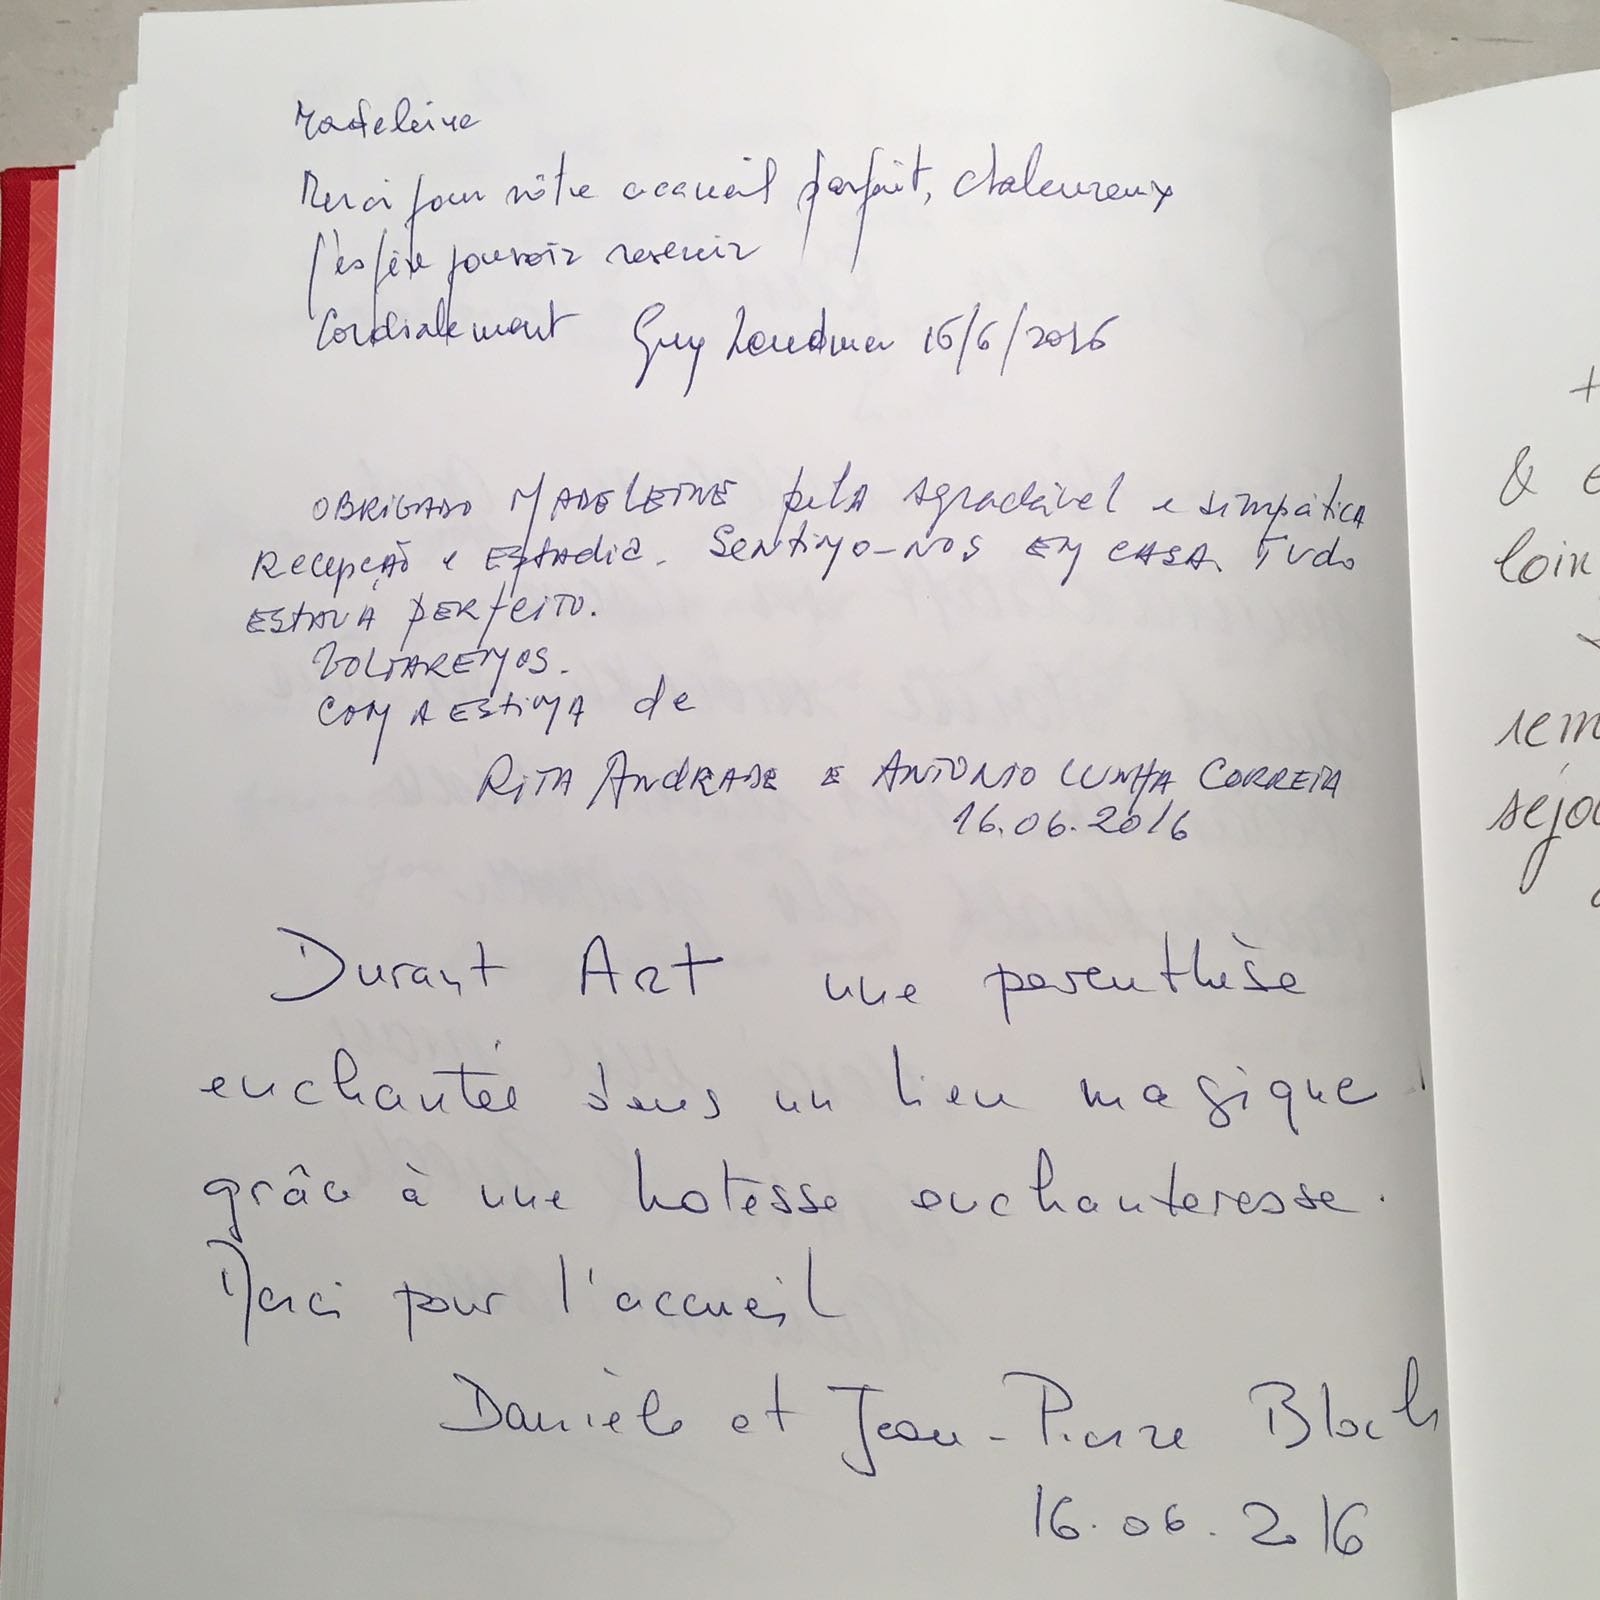 Madeleine
Merci pour vôtre accueil parfait, chaleureux
j'espère pouvoir revenir
Cordialement Guy 16/6/2016
OBRIGADO MADELEINE pelA Agradável e simpáticA
Recepção e EstAdia. Sentimo-nos em CASA. Tudo
EstAVA perfeito.
VOLTAREMOS.
COM A EStiMA de
RitA ANdRADE E ANTONIO CUNHA CORREIA
16.06.2016
Durant Art une parenthèse
enchantée dans un lieu magique
grâce à une hotesse enchanteresse.
Merci pour l'accueil
Danièle et Jean-Pierre Bloch
16.06.2016
&
loin
rem
séjo